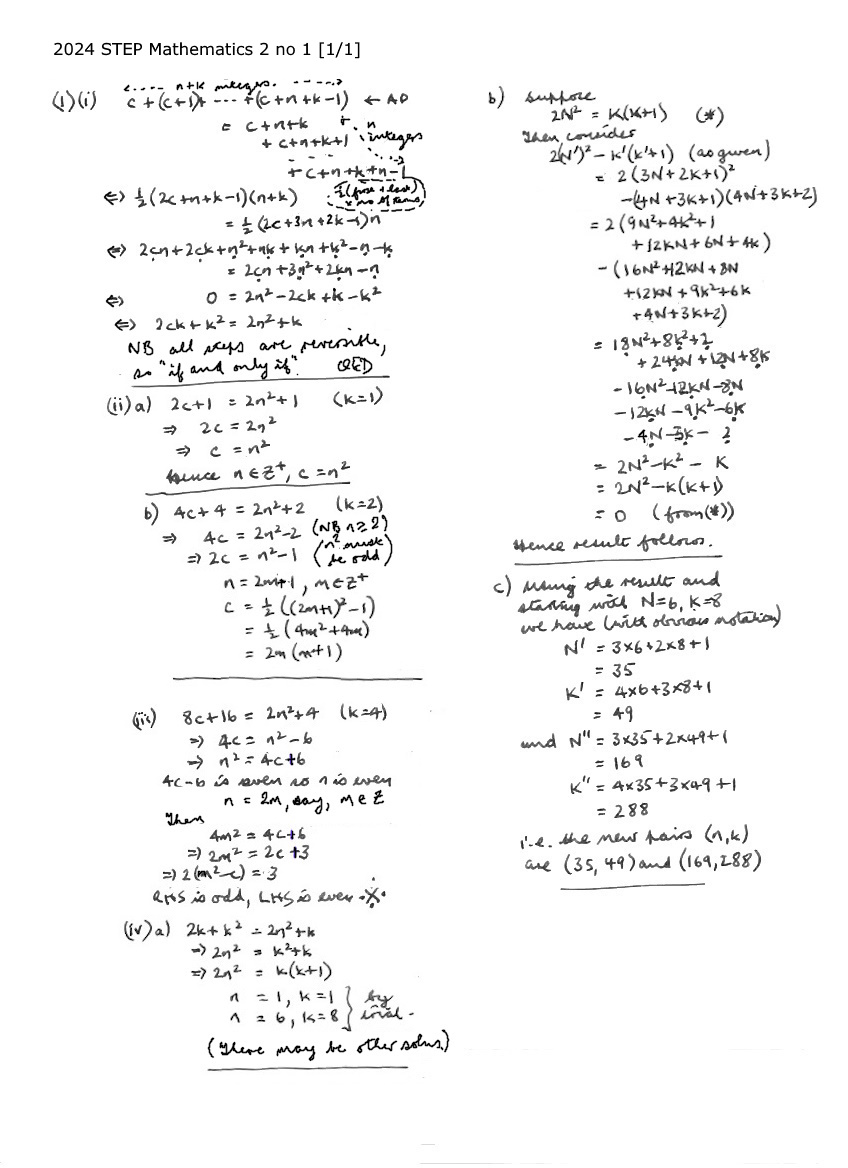 2024 STEP Mathematics 2 no 1 [1/1]
<---- n+k integers. ----->
(1)(i) c + (c+1)+ --- +(c+n+k-1) ← AP
= c+n+k + n
+ c+n+k+1 integers
+ c+n+k+n-1
⇔ ½(2c+n+k-1)(n+k) ½(first + last) × no of terms
= ½(2c+3n+2k-1)n
⇔ 2cn+2ck+n²+nk+kn+k²-n-k
= 2cn+3n²+2kn-n
⇔ 0 = 2n²-2ck+k-k²
⇔ 2ck+k² = 2n²+k
NB all steps are reversible,
so "if and only if". QED
(ii)a) 2c+1 = 2n²+1 (k=1)
⇒ 2c = 2n²
⇒ c = n²
Hence n∈Z⁺, c=n²
b) 4c+4 = 2n²+2 (k=2)
⇒ 4c = 2n²-2 (NB n≥2)
⇒ 2c = n²-1 (n² must be odd)
n = 2m+1, m∈Z⁺
c = ½((2m+1)²-1)
= ½(4m²+4m)
= 2m(m+1)
(iii) 8c+16 = 2n²+4 (k=4)
⇒ 4c = n²-6
⇒ n² = 4c+6
4c-6 is even so n is even
n = 2m, say, m∈Z
Then
4m² = 4c+6
⇒ 2m² = 2c+3
⇒ 2(m²-c) = 3
RHS is odd, LHS is even ※
(iv)a) 2k+k² = 2n²+k
⇒ 2n² = k²+k
⇒ 2n² = k(k+1)
n = 1, k=1 } by
n = 6, k=8 } trial.
(There may be other solns.)
b) Suppose
2N² = K(K+1) (*)
Then consider
2(N')²-K'(K'+1) (as given)
= 2(3N+2K+1)²
-(4N+3K+1)(4N+3K+2)
= 2(9N²+4K²+1
+12KN+6N+4K)
-(16N²+12KN+8N
+12KN+9K²+6K
+4N+3K+2)
= 18N²+8K²+2
+24KN+12N+8K
-16N²-12KN-8N
-12KN-9K²-6K
-4N-3K-2
= 2N²-K²-K
= 2N²-K(K+1)
= 0 (from(*))
Hence result follows.
c) Using the result and
starting with N=6, K=8
we have (with obvious notation)
N' = 3×6+2×8+1
= 35
K' = 4×6+3×8+1
= 49
and N" = 3×35+2×49+1
= 169
K" = 4×35+3×49+1
= 288
i.e. the new pairs (n,k)
are (35, 49) and (169,288)